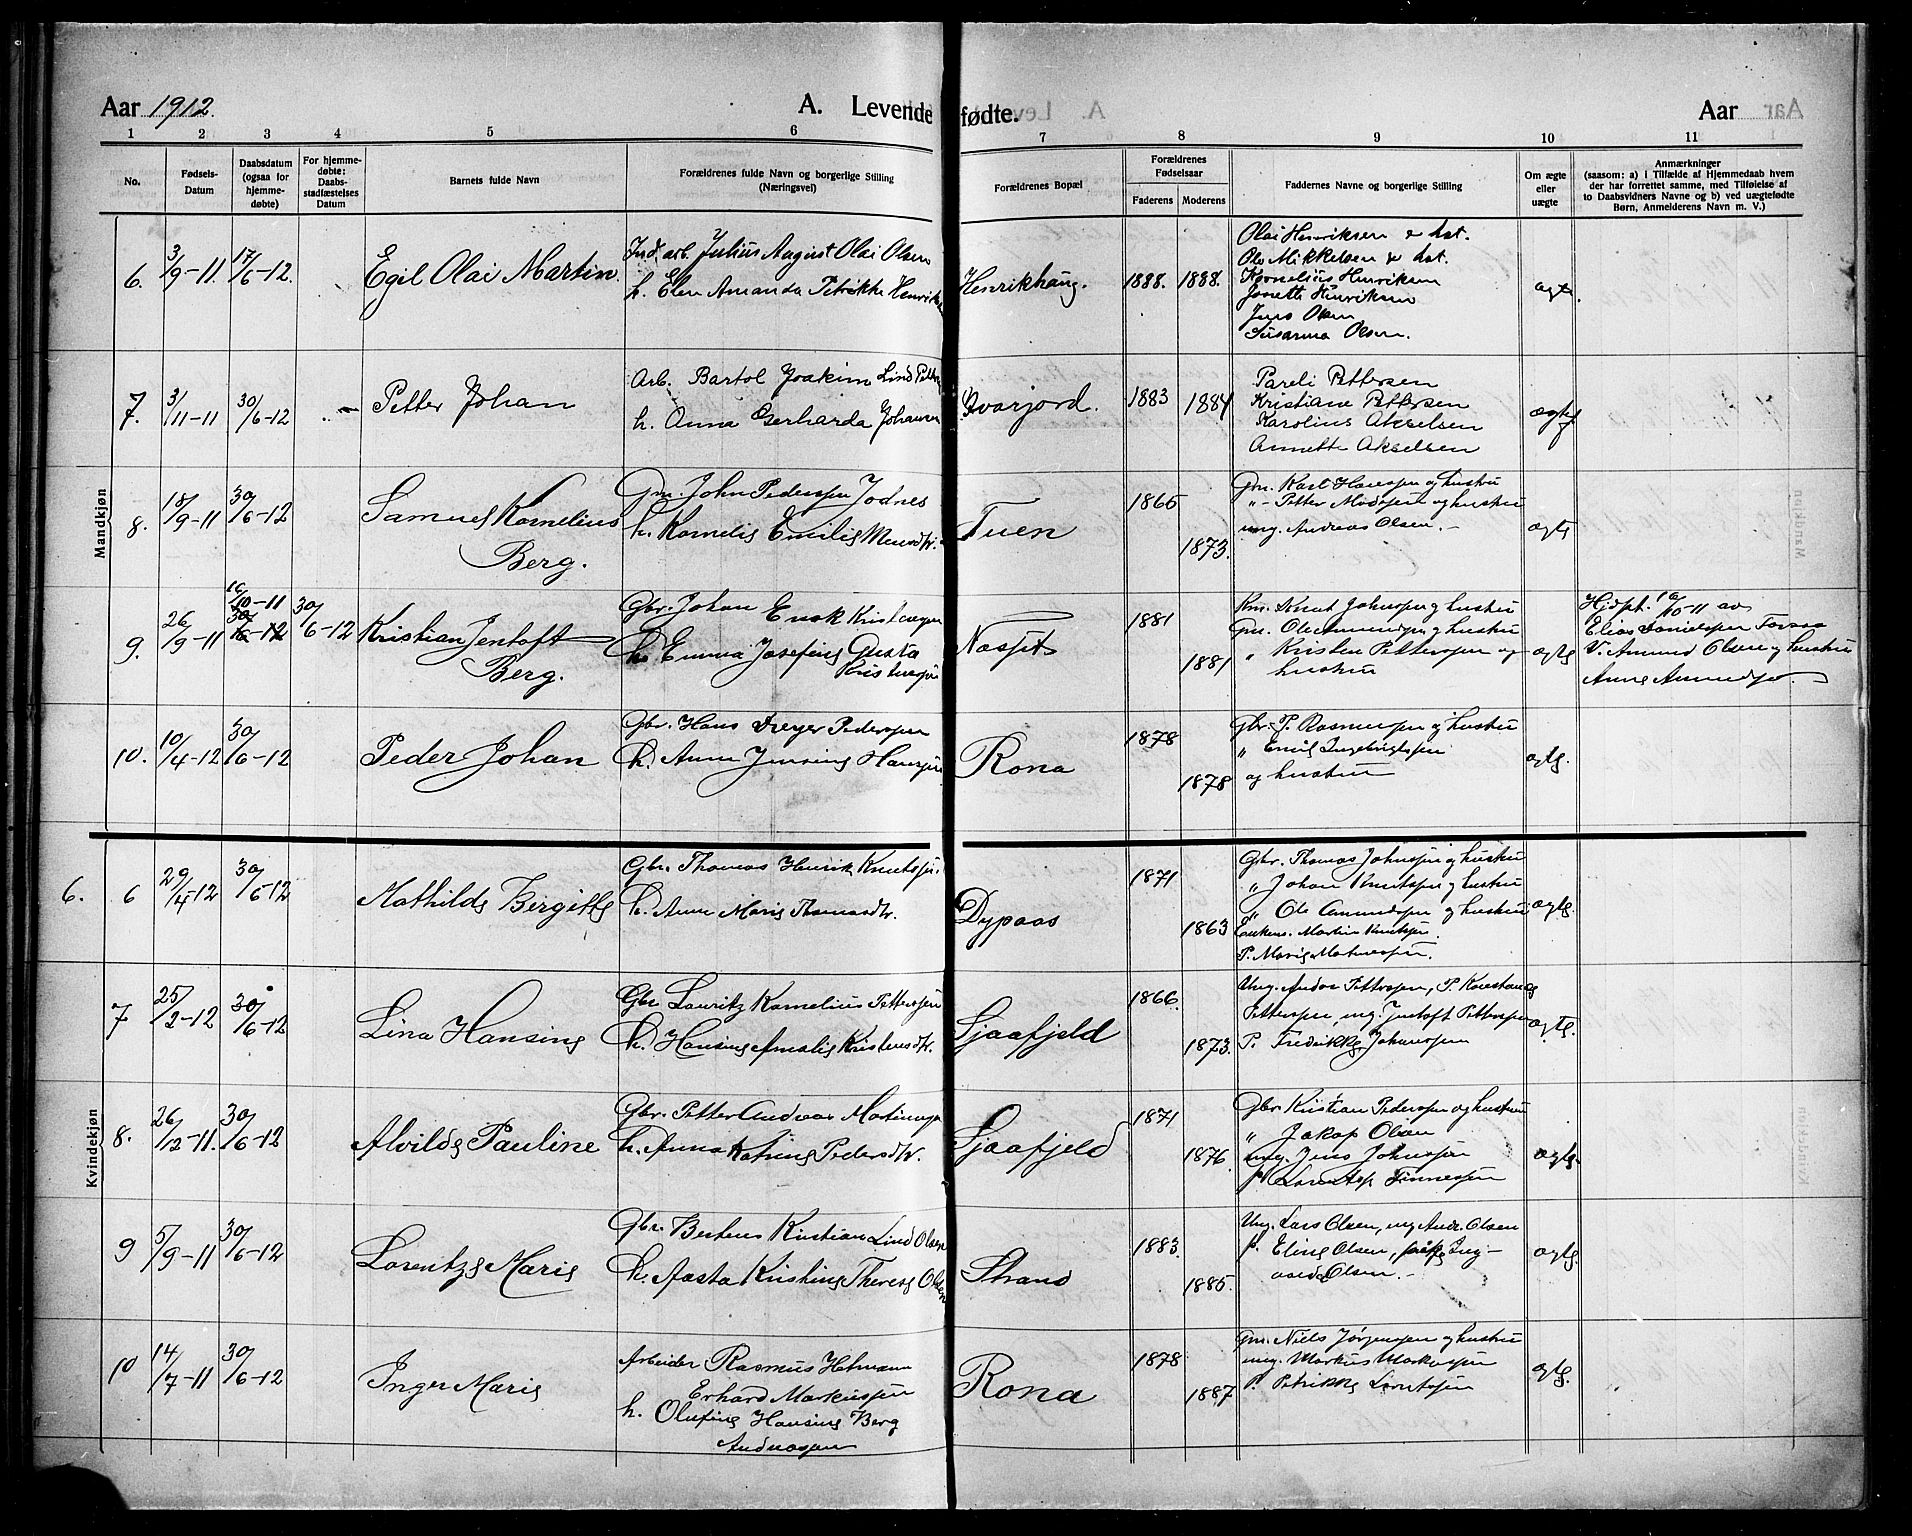 Aar 1912. A. Levende fødte. Aar
1 2 3 4 5 6 7 8 9 10 11
No. Fødsels-Datum Daabsdatum (ogsaa for hjemme-døbte) For hjemme-døbte: Daabs-stadfæstelses Datum Barnets fulde Navn Forældrenes fulde Navn og borgerlige Stilling (Næringsvei) Forældrenes Bopæl Forældrenes Fødselsaar Faderens Moderens Faddernes Navne og borgerlige Stilling Om ægte eller uægte Anmærkninger (saasom: a) i Tilfælde af Hjemmedaab hvem der har forrettet samme, med Tilføielse af to Daabsvidners Navne og b) ved uægtefødte Børn, Anmelderens Navn m. V.)
Mandkjøn
6. 3/9-11. 17/6-12. Egil Olai Martin. Ind. arb. Julius August Olai Olsen
h. Elen Amanda Petrikke Henriks
Henrikhaug. 1888. 1888.
Olai Henriksen & hst.
Ole Mikkelsen & hst.
Kornelius Henriksen
Jonette Henriksen
Jens Olsen
Susanna Olsen.
ægte
7. 3/11-11 30/6-12 Petter Johan
Arb. Bartol Joakim Lind Petters
h. Anna Gerharda Johansen
Kvarjord. 1883 1884
Pareli Pettersen
Kristiane Pettersen
Karolius Akselsen
Annette Akselsen
ægte
8. 18/9-11 30/6-12 Samuel Kornelius
Berg.
Gm. John Pederssen Jodnes
h. Kornelie Emilie Monsdtr.
Tuen 1865 1873.
Gm. Karl Hanssen og hustru
"- Petter Madssen og hustru
ung. Andreas Olsen. -
ægte
9. 26/9-11 16/10-11 30/6-12 30/6-12 Kristian Jentoft
Berg.
Gbr. Johan Enok Kristensen
h. Emma Josefine Gusta
Kristensen
1881 1881
Km. Knut Johnssen og hustru
Gm. Ole Amundssen og hustru
" Kristen Petterssen og
hustru
ægte
Hjdpt. 16/10-11 av
Elias Danielssen
V. Amund Olsen og hustru
Anne Amundssen.
10. 10/4-12 30/6-12 Peder Johan
Gbr. Hans Dreyer Pederssen
h. Anne Jensine Hanssen
Rona 1878 1878
Gbr. P. Rasmussen og hustru
" Emil Ingebrigtssen
og hustru
ægte.
Kvindekjøn
6. 6 29/4-12 30/6-12 Mathilde Bergitte
Gbr. Thomas Henrik Knutssen.
h. Anne Marie Thomasdtr.
Dypaas 1871 1863
Gbr. Thomas Johnssen og hustru
" Johan Knutssen og hustru
" Ole Amundssen og hustru
Enkem. Martin Knutssen.
P. Marie
ægte.
7 25/2-12 30/6-12 Lina Hansine
Gbr Lauritz Kornelius Petterssen
h. Hansine Amalie Kristensdtr.
Sjaafjeld 1866 1873.
Ung. Andor Petterssen, P. Konstanse
Petterssen, ung. Jentoft Petterssen
P. Fredrikke Johanssen
ægte.
8. 26/12-11. 30/6-12 Alvilde Pauline
Gbr. Petter Andreas
h. Anna Katrine Pedersdtr.
Sjaafjeld 1871 1876.
Gbr Kristian Pederssen og hustru
" Jakop Olsen
ung. Jens Johnssen
ægte.
9 5/9-11 30/6-12 Lorentze Marie
Gbr. Bertens Kristian Lind Olsen
h. Aasta Kristine Therese Olsen
Strand 1883. 1885.
Ung. Lars Olsen, ung Andr. Olsen
p. Eline Olsen,
Olsen. -
ægte.
10 14/7-11 30/6-12 Inger Marie
Arbeider Rasmus Hofmann
Erhard Markussen
h. Olufine Hansine Berg
Andreassen
Rona 1878 1887
Gm. Niels Jørgenssen og hustru
ung. Markus Markussen
P. Petrikke Lorntssen
ægte.